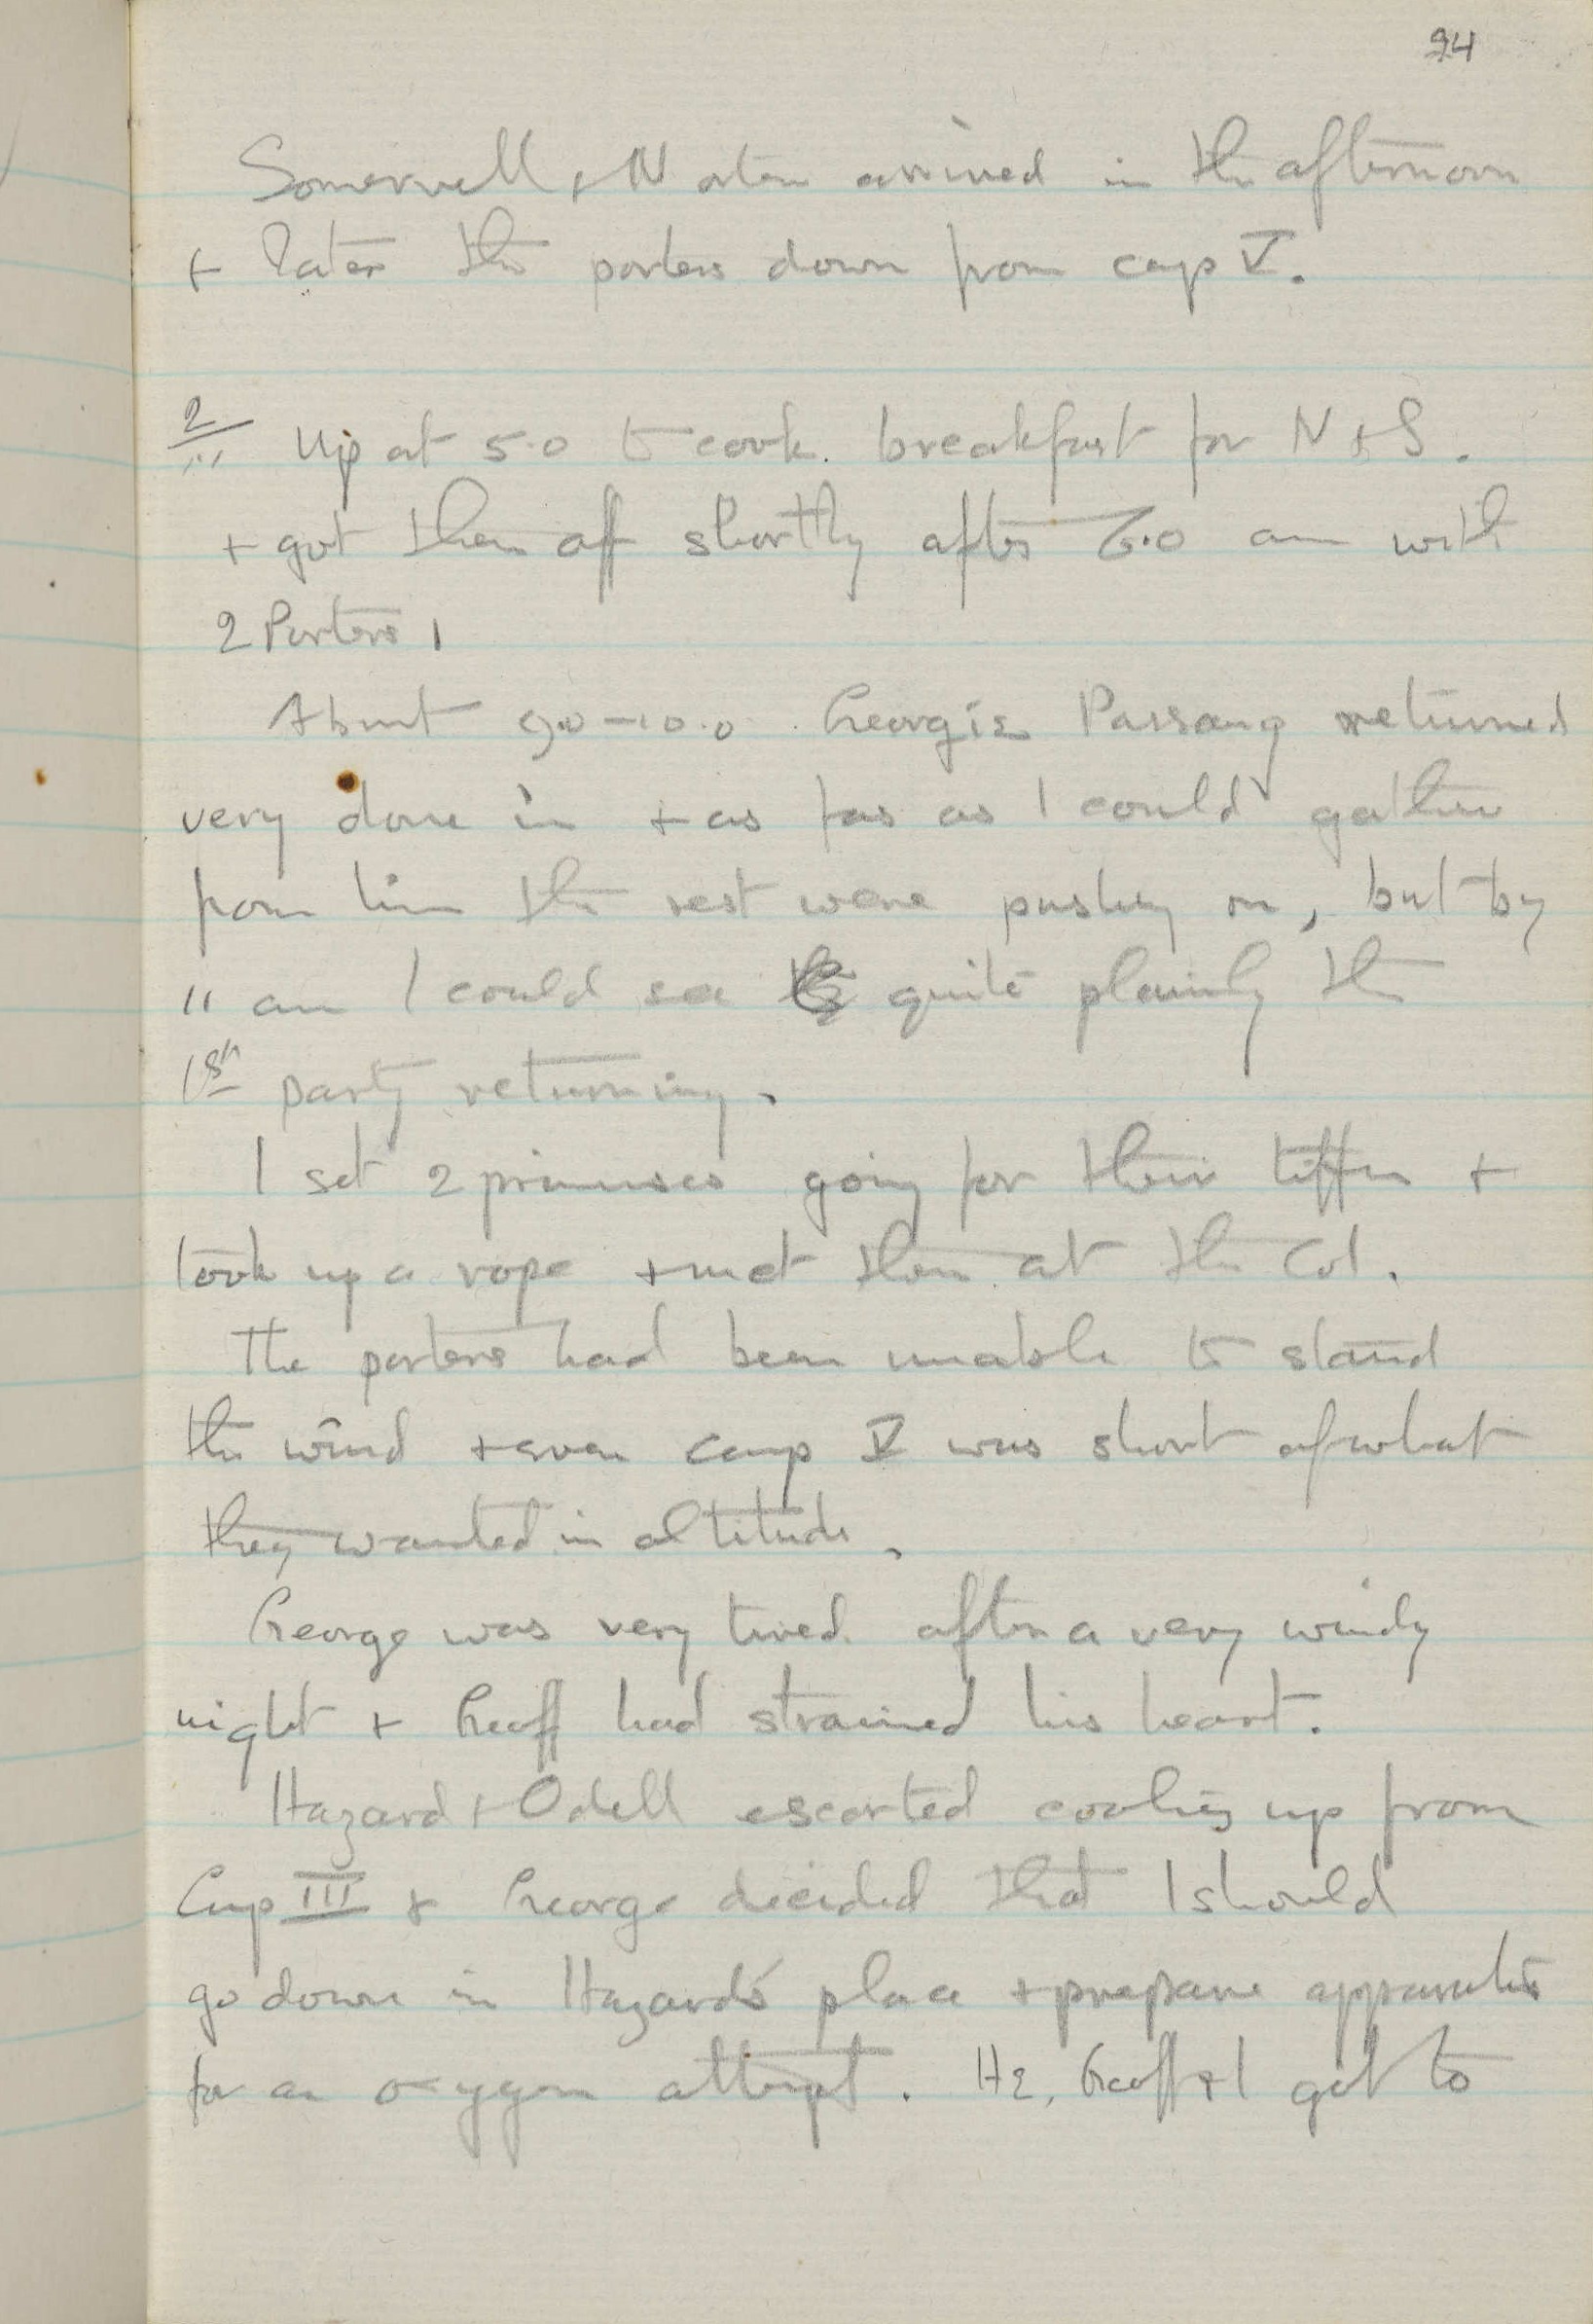 94
Somervell & Norton arrived in the afternoon
+ later the porters down from camp V.
2/...
Up at 5.0 to cook breakfast for N & S.
+ got them off shortly after 6.0 am with
2 Porters.
About 9.0 – 10.0. George's Passang returned
very done in + as far as I could gather
from him the rest were pushing on, but by
11 am I could see quite plainly the
1st party returning.
I set 2 primuses going for their tiffin +
took up a rope + met them at the Col.
The porters had been unable to stand
the wind + even camp V was short of what
they wanted in altitude.
George was very tired after a very windy
night + Geoff had strained his heart.
Hazard + Odell escorted coolies up from
Camp III & George decided that I should
go down in Hazard's place + prepare apparatus
for an oxygen attempt. Hz, Geoff & I got to